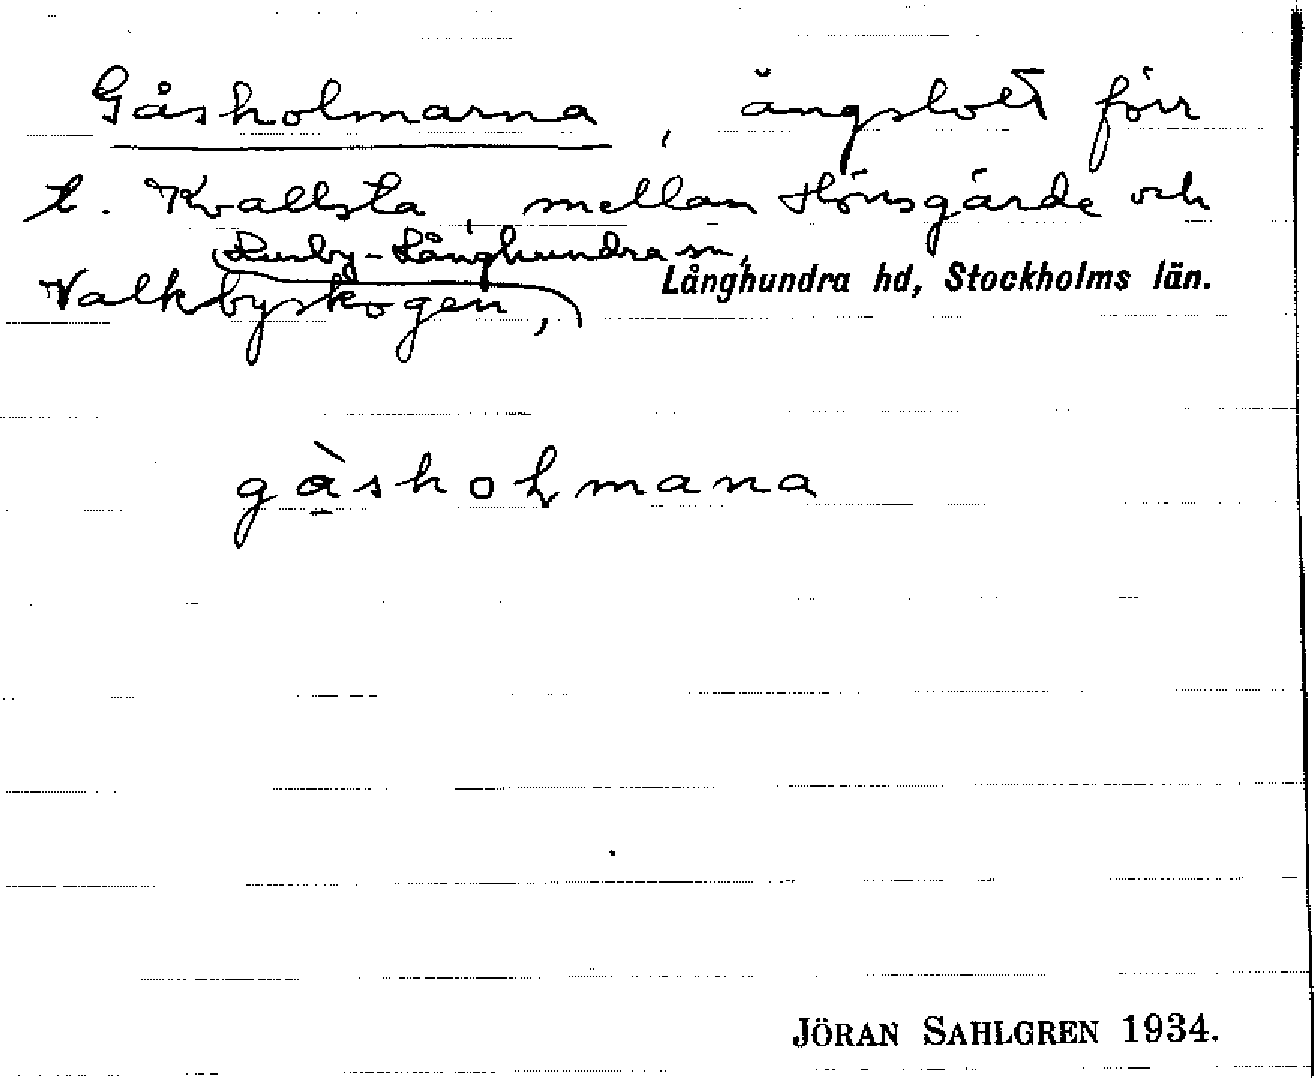 Gåsholmarna, ängslott förr
t. Kvallsta, mellan Hönsgärde och
Husby-Långhundra sn,
Valkbyskogen, Långhundra hd, Stockholms län.
gåsholmana
JÖRAN SAHLGREN 1934.